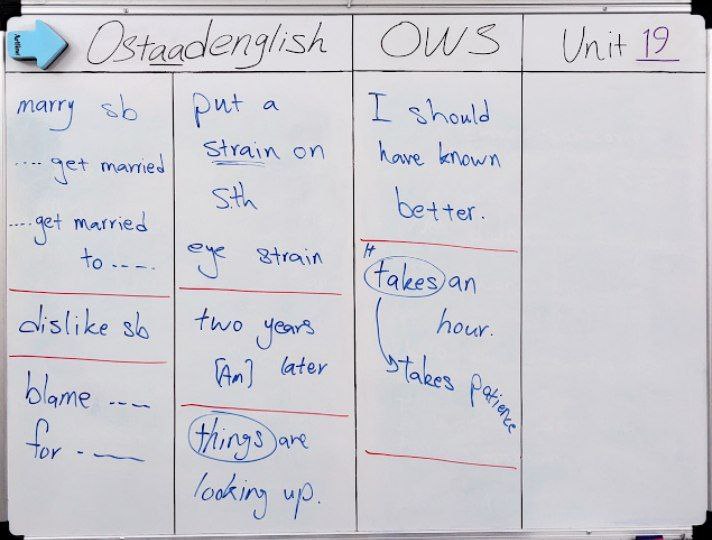 Artline
Ostaadenglish
OWS
Unit 19
marry sb
.... get married
....get married
to ----.
dislike sb
blame ---
for - ——
put a
strain on
sth
eye strain
two years
[Am] later
things are
looking up.
I should
have known
better.
It
takes an
hour.
takes patience